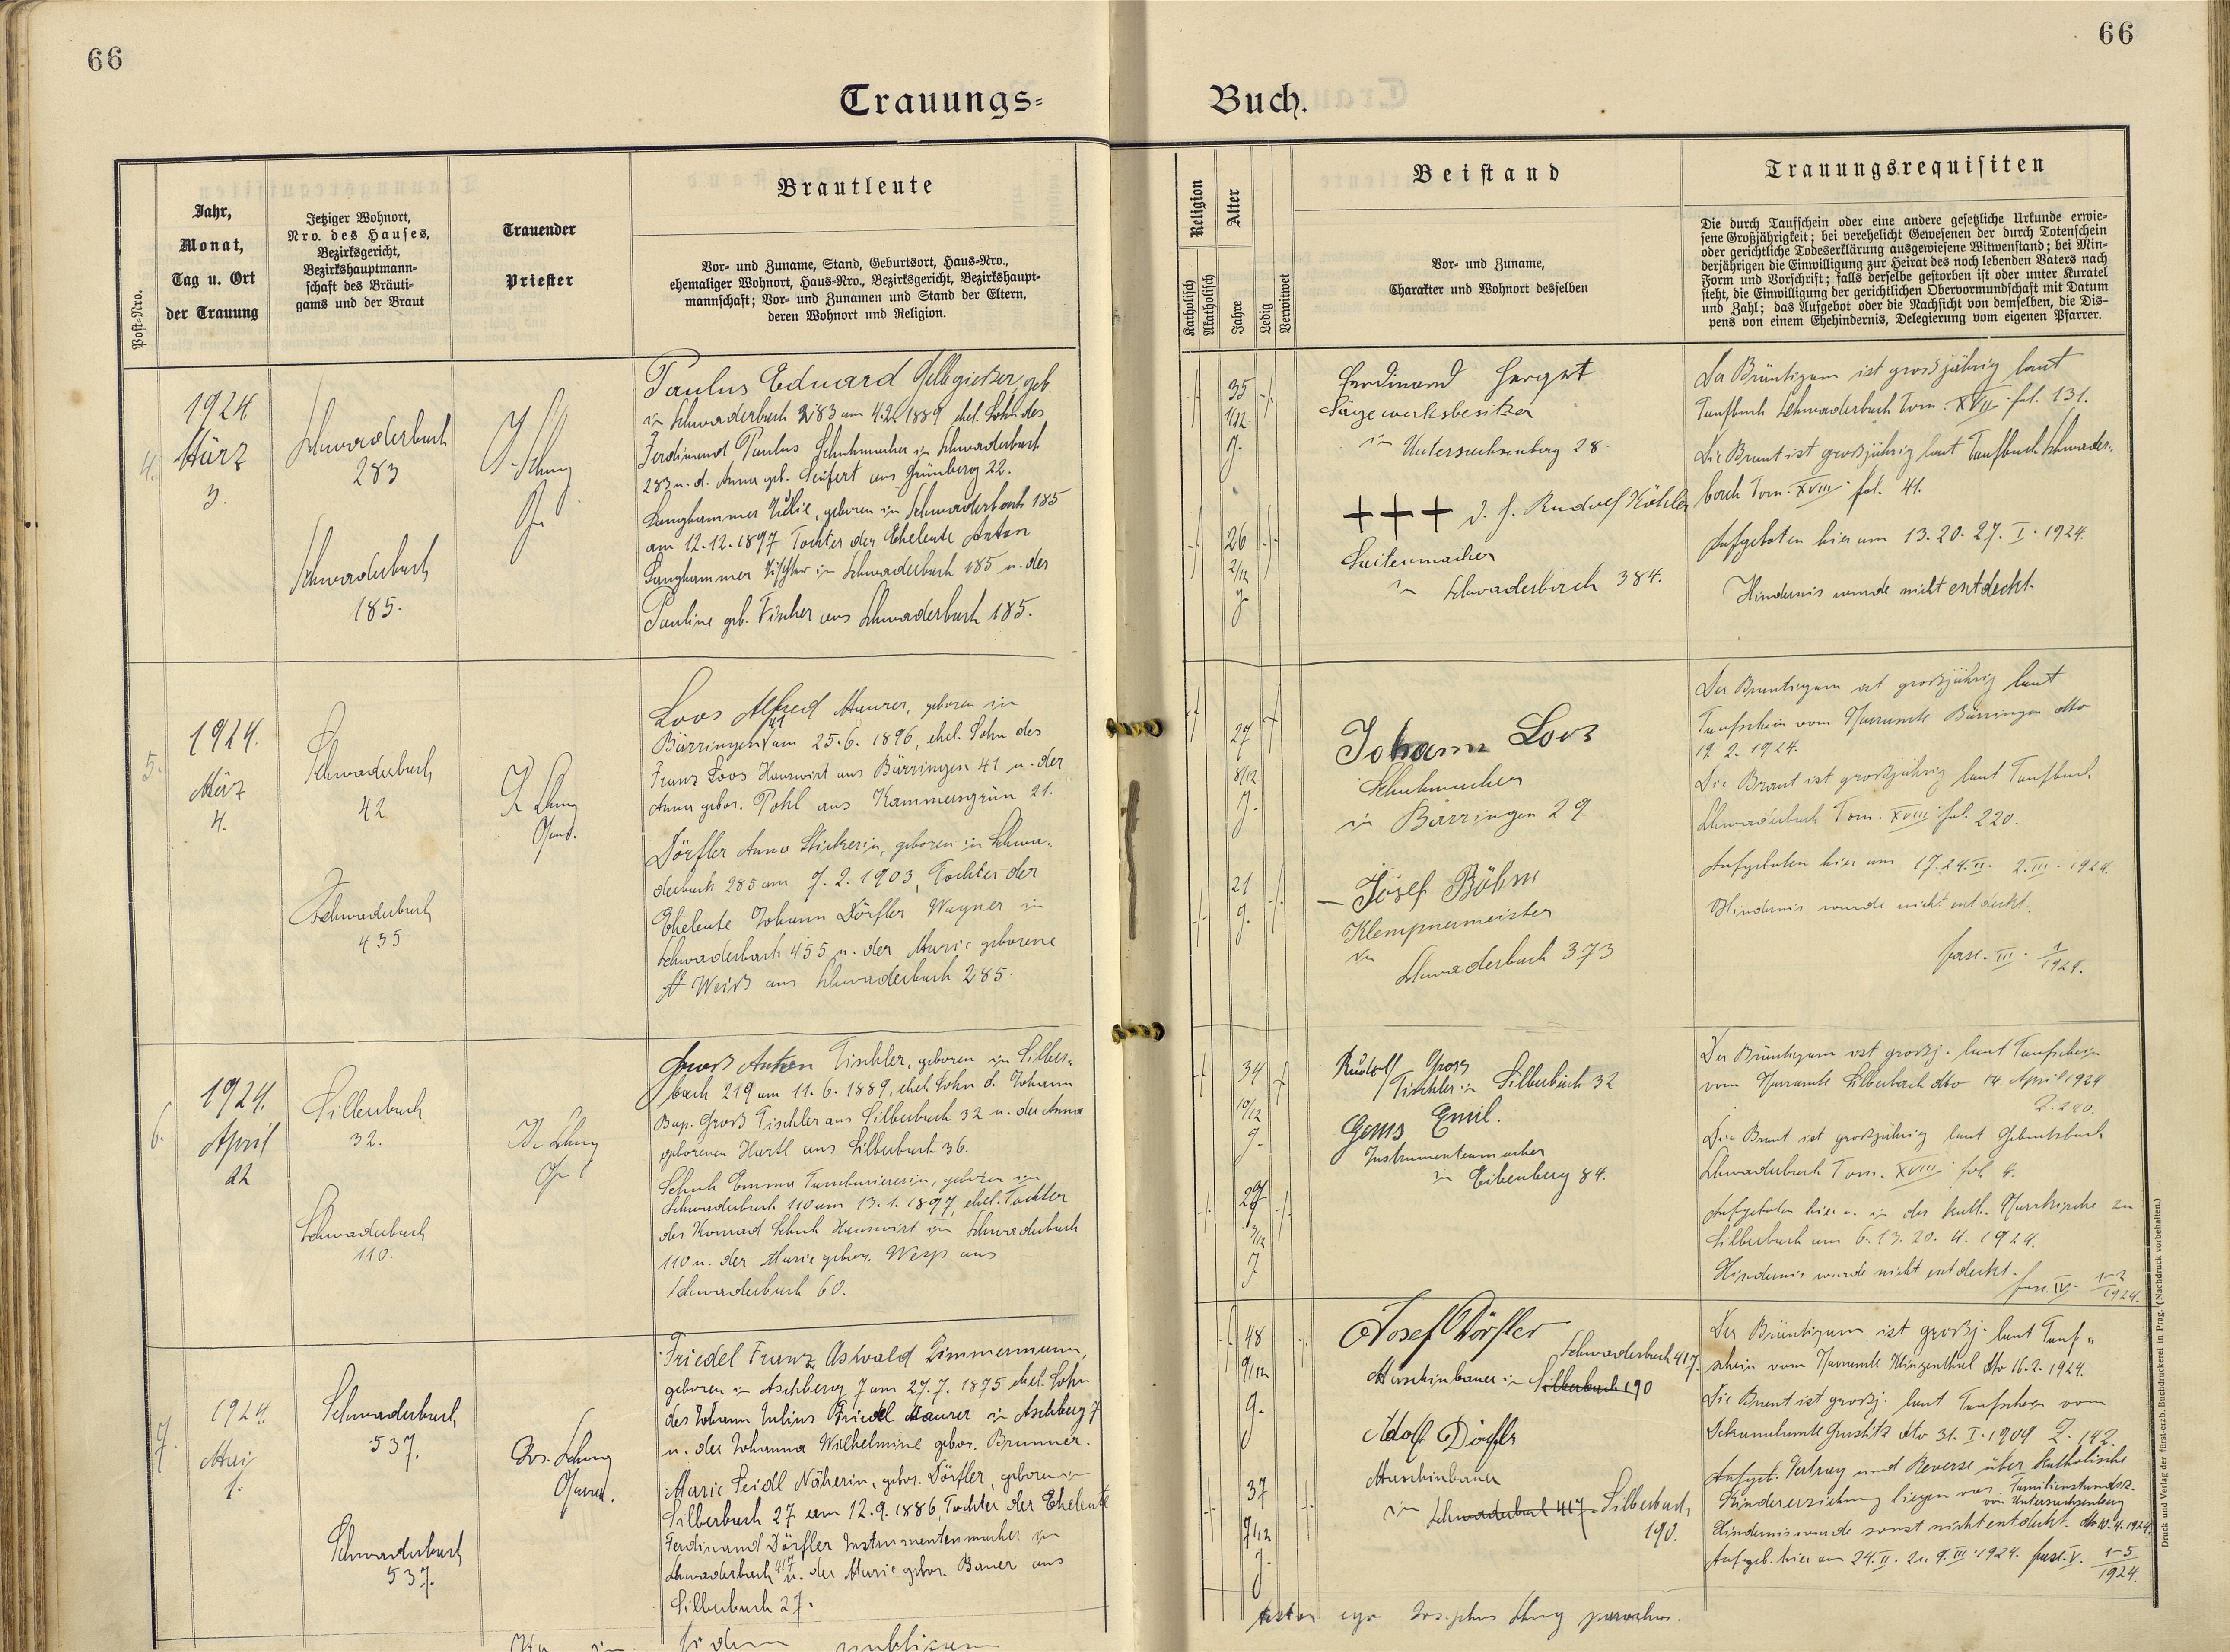 66
66
Trauungs=
Buch.
Post=Nro.
Jahr,
Monat,
Tag u. Ort
der Trauung
Jetziger Wohnort,
Nro. des Hauses,
Bezirksgericht,
Bezirkshauptmann=
schaft des Bräuti=
gams und der Braut
Trauender
Priester
Brautleute
Vor= und Zuname, Stand, Geburtsort, Haus=Nro.,
ehemaliger Wohnort, Haus=Nro., Bezirksgericht, Bezirkshaupt=
mannschaft; Vor= und Zunamen und Stand der Eltern,
deren Wohnort und Religion.
Religion
Katholisch
Akatholisch
Alter
Jahre
Ledig
Verwitwet
Beistand
Vor= und Zuname,
Charakter und Wohnort desselben
Trauungsrequisiten
Die durch Taufschein oder eine andere gesetzliche Urkunde erwie=
sene Großjährigkeit; bei verehelicht Gewesenen der durch Totenschein
oder gerichtliche Todeserklärung ausgewiesene Witwenstand; bei Min=
derjährigen die Einwilligung zur Heirat des noch lebenden Vaters nach
Form und Vorschrift; falls derselbe gestorben ist oder unter Kuratel
steht, die Einwilligung der gerichtlichen Obervormundschaft mit Datum
und Zahl; das Aufgebot oder die Nachsicht von demselben, die Dis=
pens von einem Ehehindernis, Delegierung vom eigenen Pfarrer.
4.
1924
März
3.
Schwaderbach
283
Schwaderbach
185.
Paulus Eduard Gelbgießer, geb.
in Schwaderbach 283 am 4.2.1889 ehel. Sohn des
Ferdinand Paulus Schuhmacher in Schwaderbach
283 u. d. Anna geb. Seifert aus Grünberg 22.
Langhammer Julie, geboren in Schwaderbach 185
am 12.12.1897 Tochter der Eheleute Anton
Langhammer Tischler in Schwaderbach 185 u. der
Pauline geb. Fischer aus Schwaderbach 185.
35
1/12
26
2/12
Ferdinand Hergert
Sägewerksbesitzer
in Untersachsenberg 28
+++ d. h. Rudolf Köhler
Saitenmacher
in Schwaderbach 384.
Der Bräutigam ist großjährig laut
Taufbuch Schwaderbach Tom. XVII fol. 131.
Die Braut ist großjährig laut Taufbuch Schwader=
bach Tom. XVIII fol. 41.
Aufgeboten hier am 13. 20. 27. I. 1924.
Hindernis wurde nicht entdeckt.
5.
1924.
März
4.
Schwaderbach
42
Schwaderbach
455
Loos Alfred Maurer, geboren in
Bärringen 41 am 25.6.1896, ehel. Sohn des
Franz Loos Hauswirt aus Bärringen 41 u. der
Anna gebor. Pohl aus Kammersgrün 21.
Dörfler Anna Stickerin, geboren in Schwa=
derbach 285 am 7.2.1903, Tochter der
Eheleute Johann Dörfler Wagner in
Schwaderbach 455 u. der Marie geborene
Weiß aus Schwaderbach 285.
27
8/12
21
Johann Loos
Schuhmacher
in Bärringen 29
Josef Böhm
Klempnermeister
in
Schwaderbach 373
Der Bräutigam ist großjährig laut
Taufschein vom Pfarramte Bärringen dto
12. 2. 1924.
Die Braut ist großjährig laut Taufbuch
Schwaderbach Tom. XVIII fol. 220.
Aufgeboten hier am 17. 24. II. 2. III. 1924.
Hindernis wurde nicht entdeckt.
fasc. III. 1/1924.
6.
1924.
April
22
Silberbach
32.
Schwaderbach
110.
Groß Anton Tischler, geboren in Silber=
bach 219 am 11.6.1889, ehel. Sohn d. Johann
Bap. Groß Tischler aus Silberbach 32 u. der Anna
geborenen Hartl aus Silberbach 36.
Schuh Emma Tamburiererin, geboren in
Schwaderbach 110 am 13.1.1897, ehel. Tochter
des Konrad Schuh Hauswirt in Schwaderbach
110 u. der Marie gebor. Weps aus
Schwaderbach 60.
34
10/12
27
3/12
Rudolf Gross
Tischler in Silberbach 32
Emil.
Instrumentenmacher
in Eibenberg 84.
Der Bräutigam ist großj. laut Taufschein
vom Pfarramte Silberbach dto 14. April 1924
Z. 240.
Die Braut ist großjährig laut Geburtsbuch
Schwaderbach Tom. XVIII fol. 4.
Aufgeboten hier u. in der kath. Pfarrkirche zu
Silberbach am 6. 13. 20. 4. 1924.
Hindernis wurde nicht entdeckt.
fasc. IV. 1-2/1924.
7.
1924.
Mai
1.
Schwaderbach
537.
Schwaderbach
537.
Friedel Franz Oswald Zimmermann,
geboren in Aschberg 7 am 27.7.1875 ehel. Sohn
des Johann Julius Friedel Maurer in Aschberg 7
u. der Johanna Wilhelmine gebor. Brunner.
Marie Seidl Näherin, gebor. Dörfler, geboren in
Silberbach 27 am 12.9.1886, Tochter der Eheleute
Ferdinand Dörfler Instrumentenmacher in
Schwaderbach 417 u. der Marie gebor. Bauer aus
Silberbach 27.
48
9/12
37
7/12
Josef Dörfler
Schwaderbach 417.
Maschinbauer in Silberbach 190
Adolf Dörfler
Maschinbauer
in Schwaderbach 417 Silberbach
190.
Der Bräutigam ist großj. laut Tauf=
schein vom Pfarramte Klingenthal dto 16.2.1924.
Die Braut ist großj. laut Taufschein vom
Dekanalamte Graslitz dto 31. I. 1909 Z. 142.
Aufgeb. Vertrag und Reverse über katholische
Kindererziehung liegen vor. Familienstandsz.
von Untersachsenberg
Hindernis wurde sonst nicht entdeckt. dto 10.4.1924.
Aufgeb. hier am 24. II. 2. 9. III. 1924. fasc. V. 1-5/1924.
testor ego Josephus parochus.
fidem publicam
Druck und Verlag der fürst-erzb. Buchdruckerei in Prag. (Nachdruck vorbehalten.)